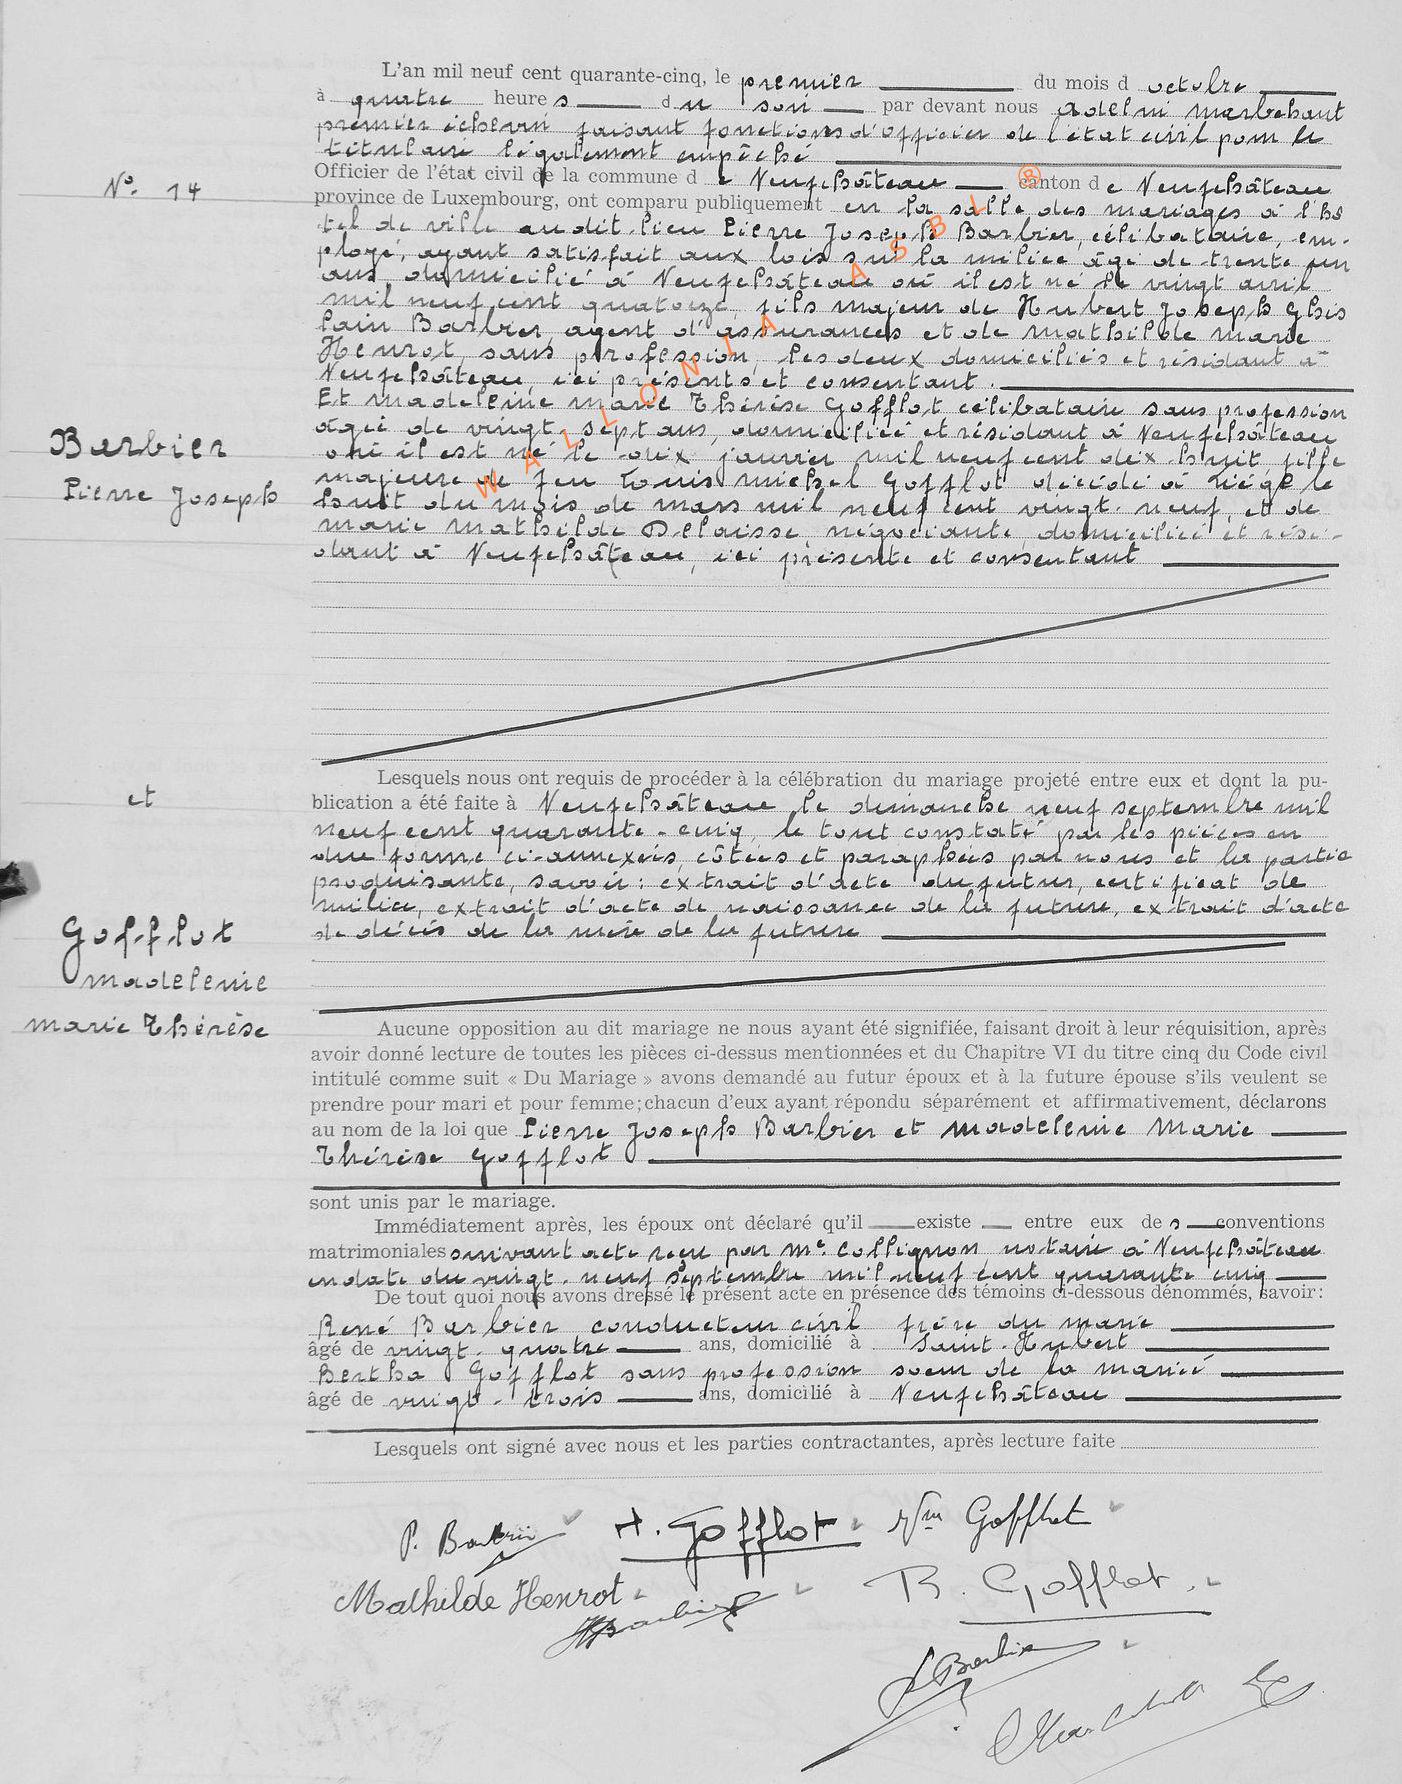 L'an mil neuf cent quarante-cinq, le premier du mois d octobre
à quatre heures du soir par devant nous Adelin Marbehant
premier échevin faisant fonctions d'officier de l'état civil pour le
titulaire légalement empêché
Officier de l'état civil de la commune de Neufchâteau canton de Neufchâteau
N° 14
province de Luxembourg, ont comparu publiquement en la salle des mariages à l'hô
tel de ville audit lieu Pierre Joseph Barbier, célibataire, em-
ployé, ayant satisfait aux lois sur la milice âgé de trente un
ans, domicilié à Neufchâteau où il est né le vingt avril
mil neuf cent quatorze, fils majeur de Hubert Joseph Ghis
lain Barbier, agent d'assurances et de Mathilde Marie
Henrot, sans profession, les deux domiciliés et résidant à
Neufchâteau, ici présents et consentant.
Et Madeleine Marie Thérèse Gofflot célibataire sans profession
âgée de vingt sept ans, domiciliée et résidant à Neufchâteau
où il est né le dix janvier mil neuf cent dix huit fille
majeure de feu Louis Michel Gofflot décédé à Liège le
huit du mois de mars mil neuf cent vingt-neuf, et de
Marie Mathilde Delaisse, négociante, domiciliée et rési-
dant à Neufchâteau, ici présente et consentant
Barbier
Pierre Joseph
WALLONIA ASBL ®
Lesquels nous ont requis de procéder à la célébration du mariage projeté entre eux et dont la pu-
blication a été faite à Neufchâteau le dimanche neuf septembre mil
neuf cent quarante-cinq, le tout constaté par les pièces en
due forme ci-annexées, côtées et paraphées par nous et la partie
produisante, savoir: extrait d'acte du futur, certificat de
milice, extrait d'acte de naissance de la future, extrait d'acte
de décès de la mère de la future
et
Gofflot
Madeleine
Marie Thérèse
Aucune opposition au dit mariage ne nous ayant été signifiée, faisant droit à leur réquisition, après
avoir donné lecture de toutes les pièces ci-dessus mentionnées et du Chapitre VI du titre cinq du Code civil
intitulé comme suit « Du Mariage » avons demandé au futur époux et à la future épouse s'ils veulent se
prendre pour mari et pour femme; chacun d'eux ayant répondu séparément et affirmativement, déclarons
au nom de la loi que Pierre Joseph Barbier et Madeleine Marie
Thérèse Gofflot
sont unis par le mariage.
Immédiatement après, les époux ont déclaré qu'il existe entre eux des conventions
matrimoniales suivant acte reçu par Me Collignon notaire à Neufchâteau
en date du vingt-neuf septembre mil neuf cent quarante cinq
De tout quoi nous avons dressé le présent acte en présence des témoins ci-dessous dénommés, savoir:
René Barbier conducteur civil frère du marié
âgé de vingt-quatre ans, domicilié à Saint-Hubert
Bertha Gofflot sans profession soeur de la mariée
âgé de vingt-trois ans, domicilié à Neufchâteau
Lesquels ont signé avec nous et les parties contractantes, après lecture faite
P. Barbier H. Gofflot Vve Gofflot
Mathilde Henrot HBarbier B. Gofflot
Barbier